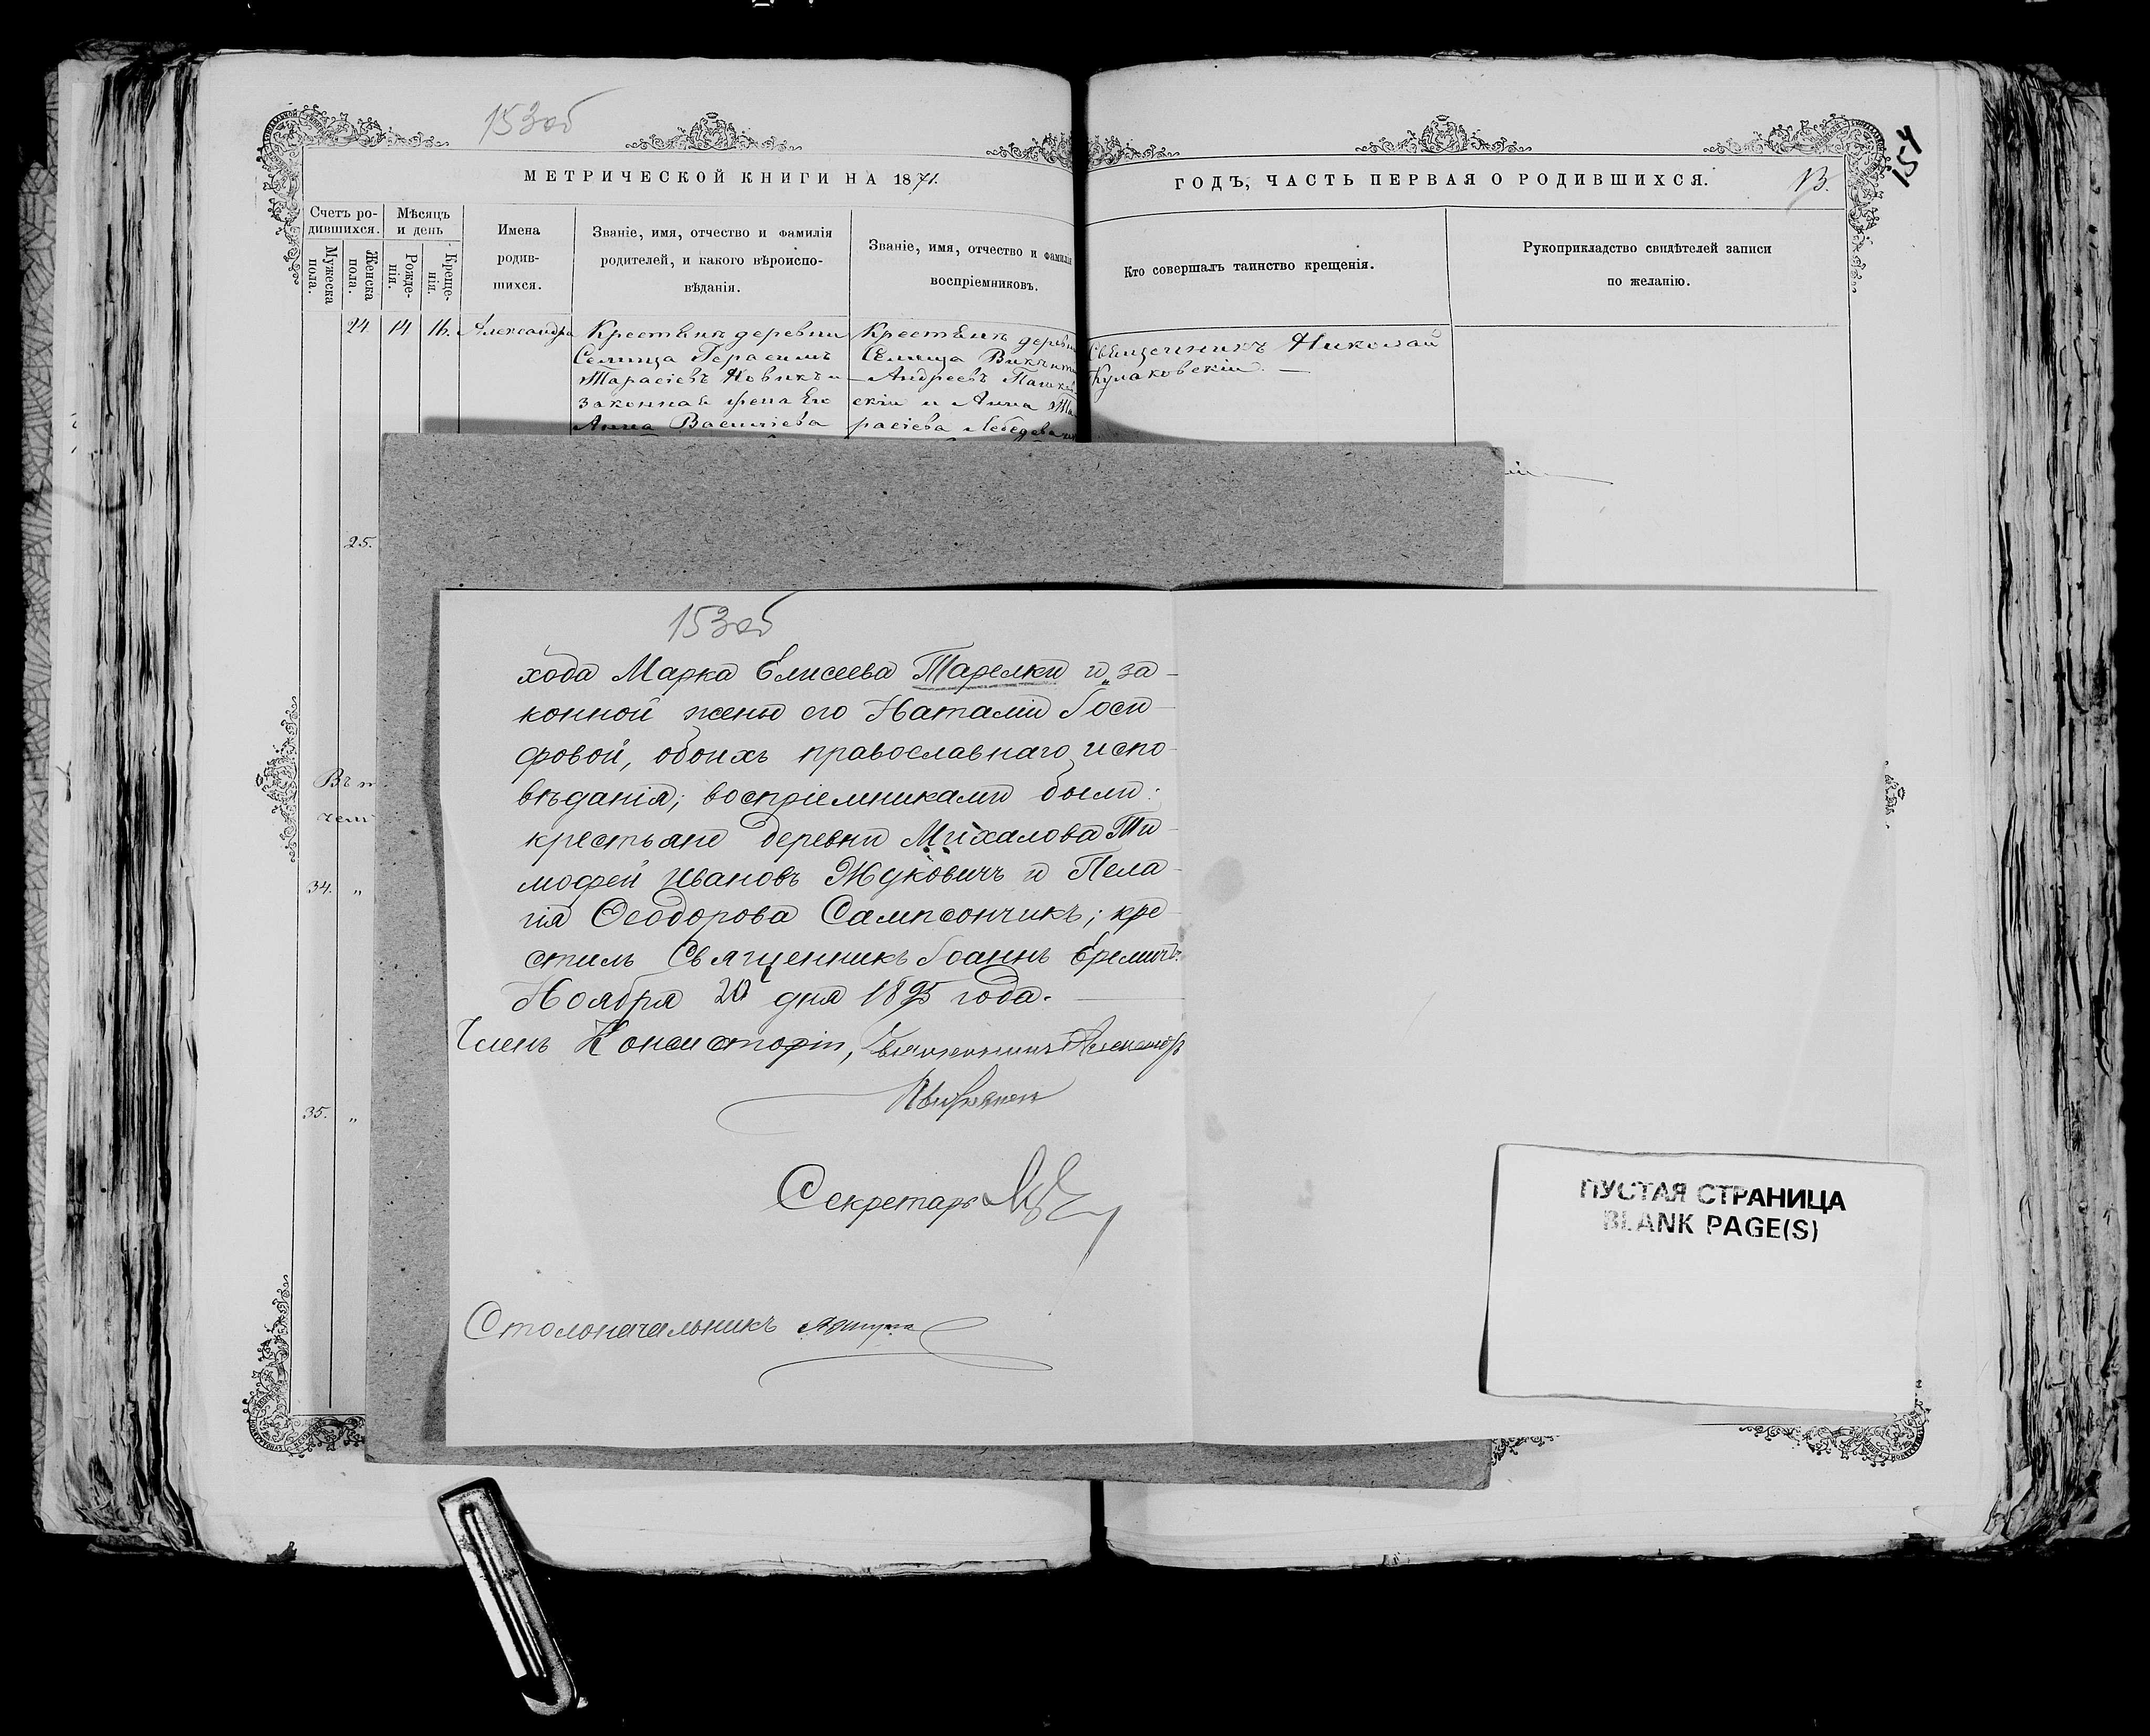 153об
154
МЕТРИЧЕСКОЙ КНИГИ НА 1871.
ГОДЪ, ЧАСТЬ ПЕРВАЯ О РОДИВШИХСЯ.
Счетъ ро-
дившихся.
Мужеска
пола.
Женска
пола.
Мѣсяцъ
и день
Рожде-
нія.
Креще-
нія.
Имена
родив-
шихся.
Званіе, имя, отчество и фамилія
родителей, и какого вѣроиспо-
вѣданія.
Званіе, имя, отчество и фамилія
воспріемниковъ.
Кто совершалъ таинство крещенія.
Рукоприкладство свидѣтелей записи
по желанію.
24 14 16. Александра
Крестьянъ деревни
Селища Герасимъ
Тарасіевъ Новикъ и
законная жена его
Анна Василіева
Крестьянъ деревни
Селища
Андреевъ
скій и Анна Та
расіева Лебедева
Священникъ Николай
Кулаковскій. —
25.
Въ
34. „
35. „
153об
хода Марка Елисеева Тарелки и за-
конной жены его Наталіи Іоси-
фовой, обоихъ православнаго испо-
вѣданія; воспріемниками были:
крестьяне деревни Михалова Ти-
мофей Ивановъ Жуковичъ и Пела-
гія Ѳеодорова Сампсончикъ; кре-
стилъ Священникъ Іоаннъ Еремичъ.
Ноября 20 дня 1895 года.
Членъ Консисторіи, Священникъ Александръ
Секретарь
Столоначальникъ
ПУСТАЯ СТРАНИЦА
BLANK PAGE(S)